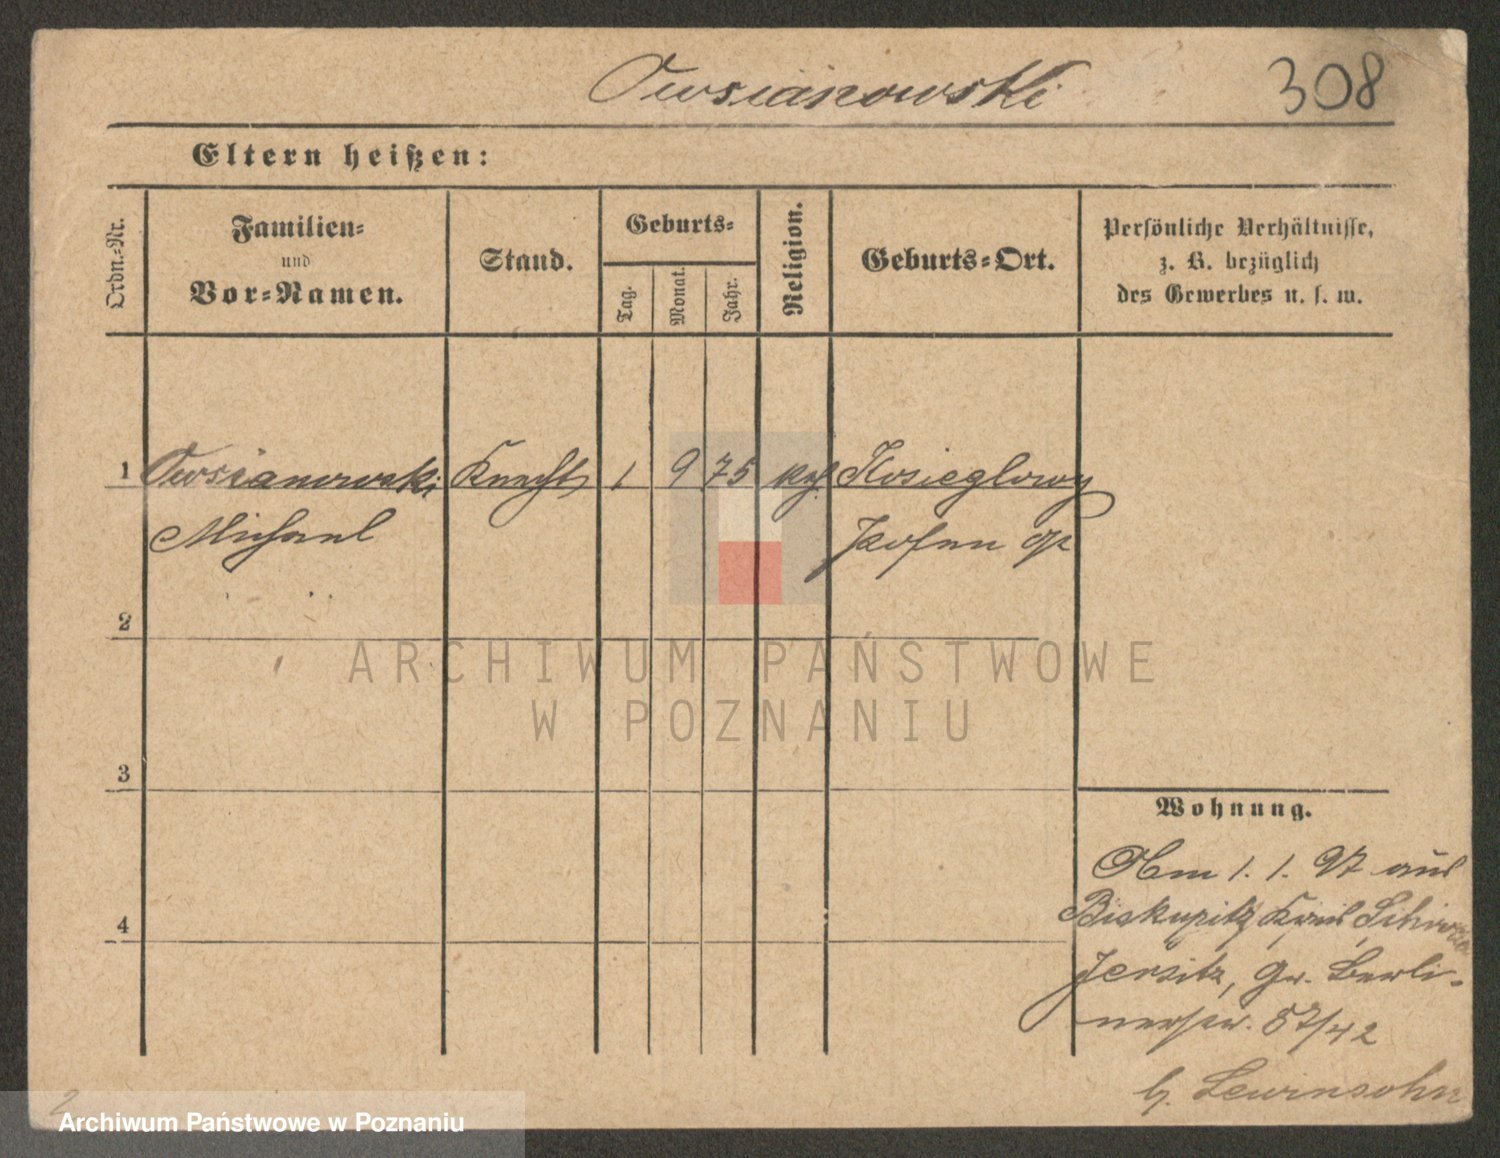 Owsianowski
308
Eltern heißen:
Ordn.-Nr.
Familien-
und
Vor-Namen.
Stand.
Geburts-
Tag.
Monat.
Jahr.
Religion.
Geburts-Ort.
Persönliche Verhältnisse,
z. B. bezüglich
des Gewerbes u. s. w.
1 Owsianowski Knecht 1 9 75 kath Kosieglowy
Michael Posen
2
3
4
ARCHIWUM PAŃSTWOWE
W POZNANIU
Wohnung.
Am 1. 1. 97 aus
Biskupitz Kreis
Jersitz, Gr. Berli-
nerstr. 57/42
b. Lewinsohn
2
Archiwum Państwowe w Poznaniu